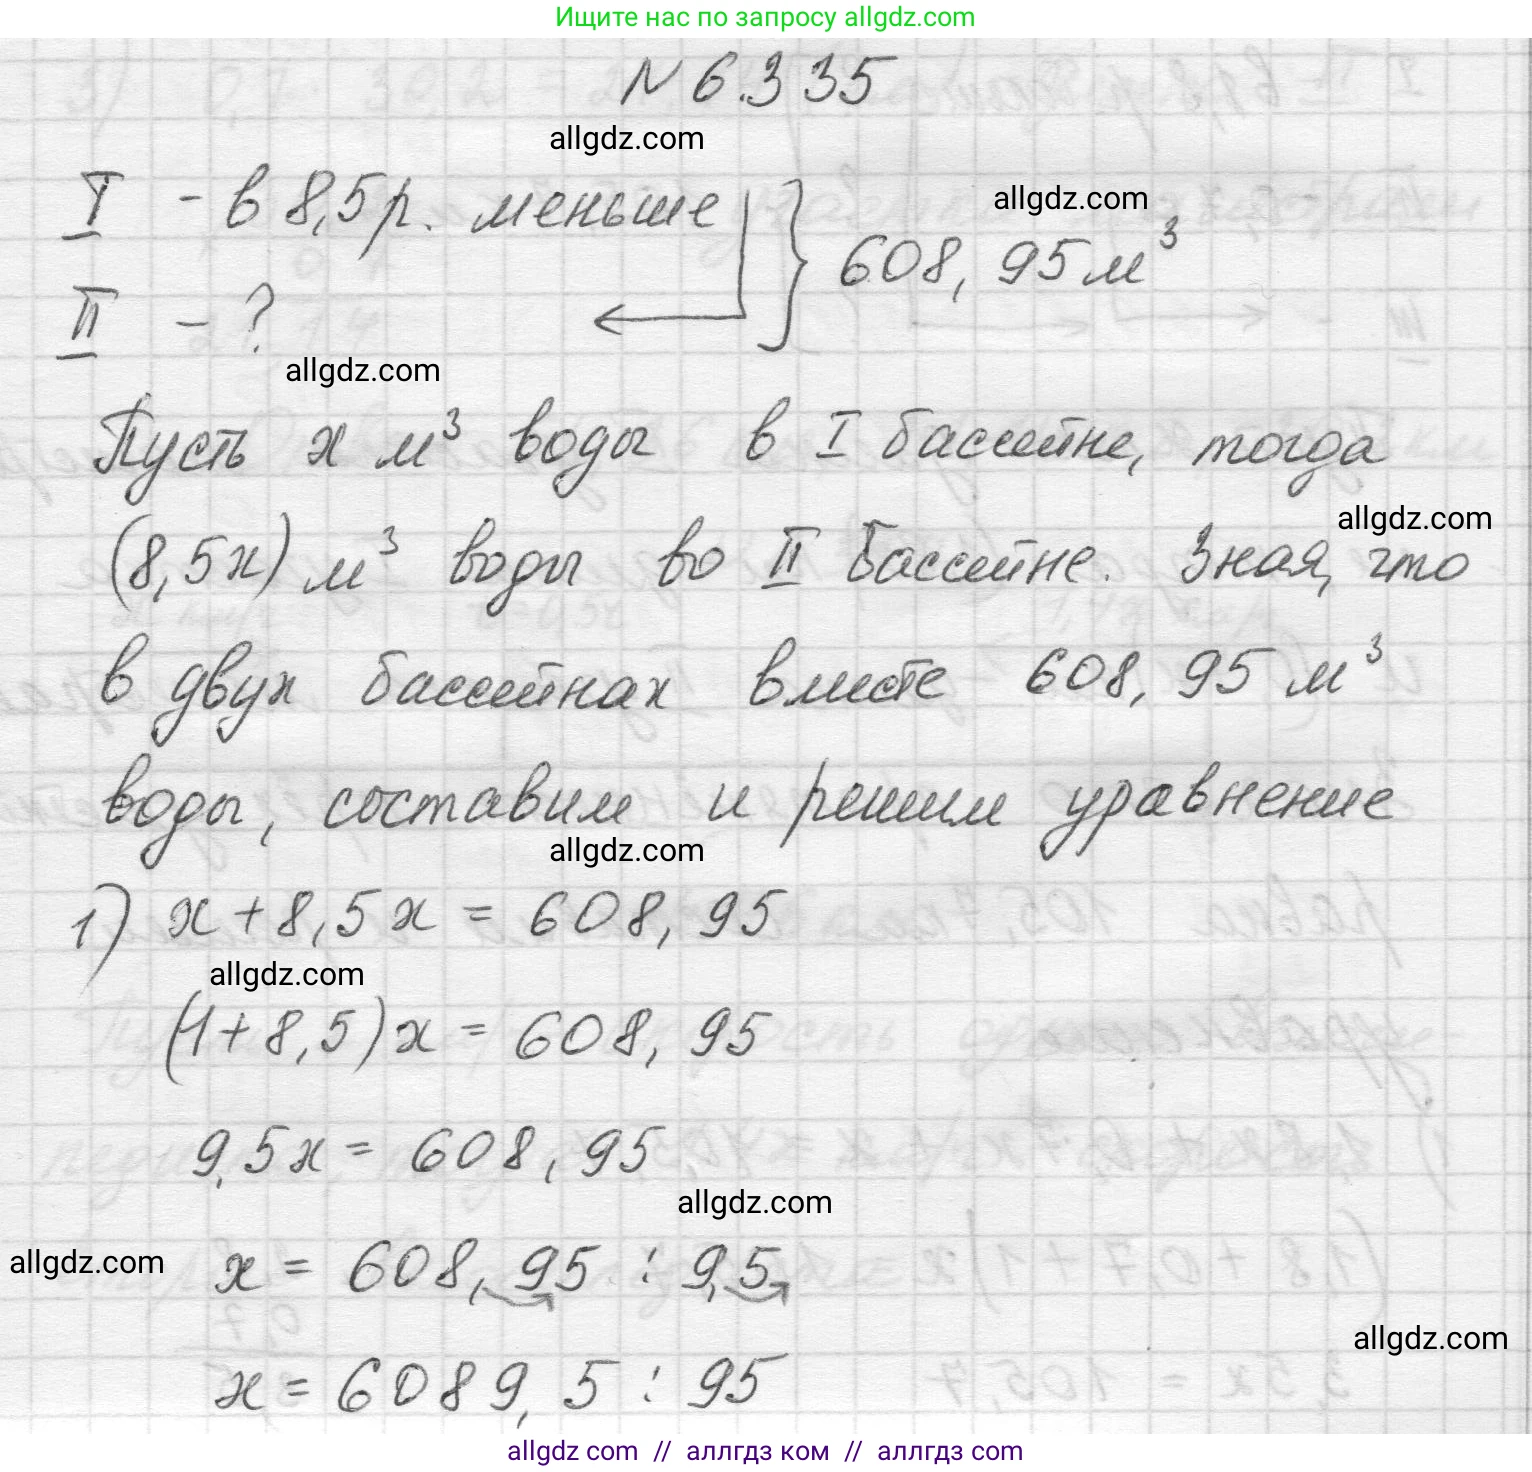 Ищите нас по запросу allgdz.com
№ 6.335
allgdz.com
I - в 8,5 р. меньше
allgdz.com
608,95 м³
II - ?
allgdz.com
Пусть x м³ воды в I бассейне, тогда
allgdz.com
(8,5x) м³ воды во II бассейне. Зная, что
в двух бассейнах вместе 608,95 м³
воды, составим и решим уравнение
allgdz.com
1) x + 8,5x = 608,95
allgdz.com
(1 + 8,5)x = 608,95
9,5x = 608,95
allgdz.com
allgdz.com
x = 608,95 : 9,5
allgdz.com
x = 6089,5 : 95
allgdz com // аллгдз ком // аллгдз com